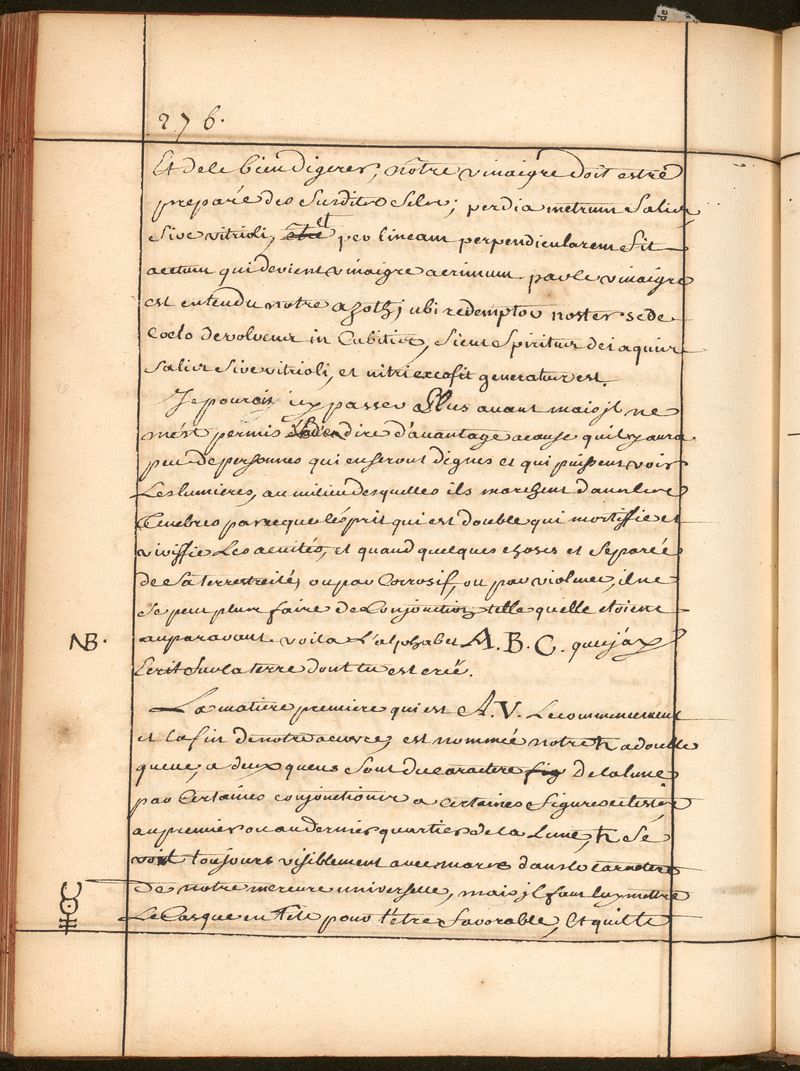 276.
Et de le bien digerer, nôtre vinaigre doit estre
preparé des Susdits Sels; per diametrum Salis
Sive vitrioli, et per lineam perpendicularem fit
acetum qui devient vinaigre acerimum. par le vinaigre
est entendu notre azoth; ubi redemptor noster se de
Coelo devolvens in Cubitis, Sicut Spiritus dei aquis
Salis Sive vitrioli, et nitri generatus est.
Je pourois icy passer Plus avant mais jl ne
m'est permis d'en dire d'auantage acause quil y aura
peu de personnes qui en seront dignes et qui puissent voir
Les lumieres, au milieu desquelles ils marchent dans les
Tenebres parceque lésprit qui est double qui mortiffie et
viviffie Les acuités, et quand quelques choses et Separée
de Sa terrestreité, ou par Corrosif, ou par violence, il ne
Se peut plus faire de Conjonction telle quelle etoient
NB. auparavant voila L'alphabet A. B. C. que j'ay
Ecrit Sur la terre dont tu est creé.
La matiere premiere qui est A.V. Le commencement
et la fin de notre œuvre, est nommée notre ♄ a double
queue, a deux queues Sont du caractere de la lune
par Certaines conjonctions a certaines figures celestes,
au premier ou au dernier quartier de la Lune, ♄ Se
voit toujours visiblement avec mars dans le caractere
de notre mercure universelle, mais jl faut luy mettre
Le Casque en Tête pour l'etre favorable, Et quil te